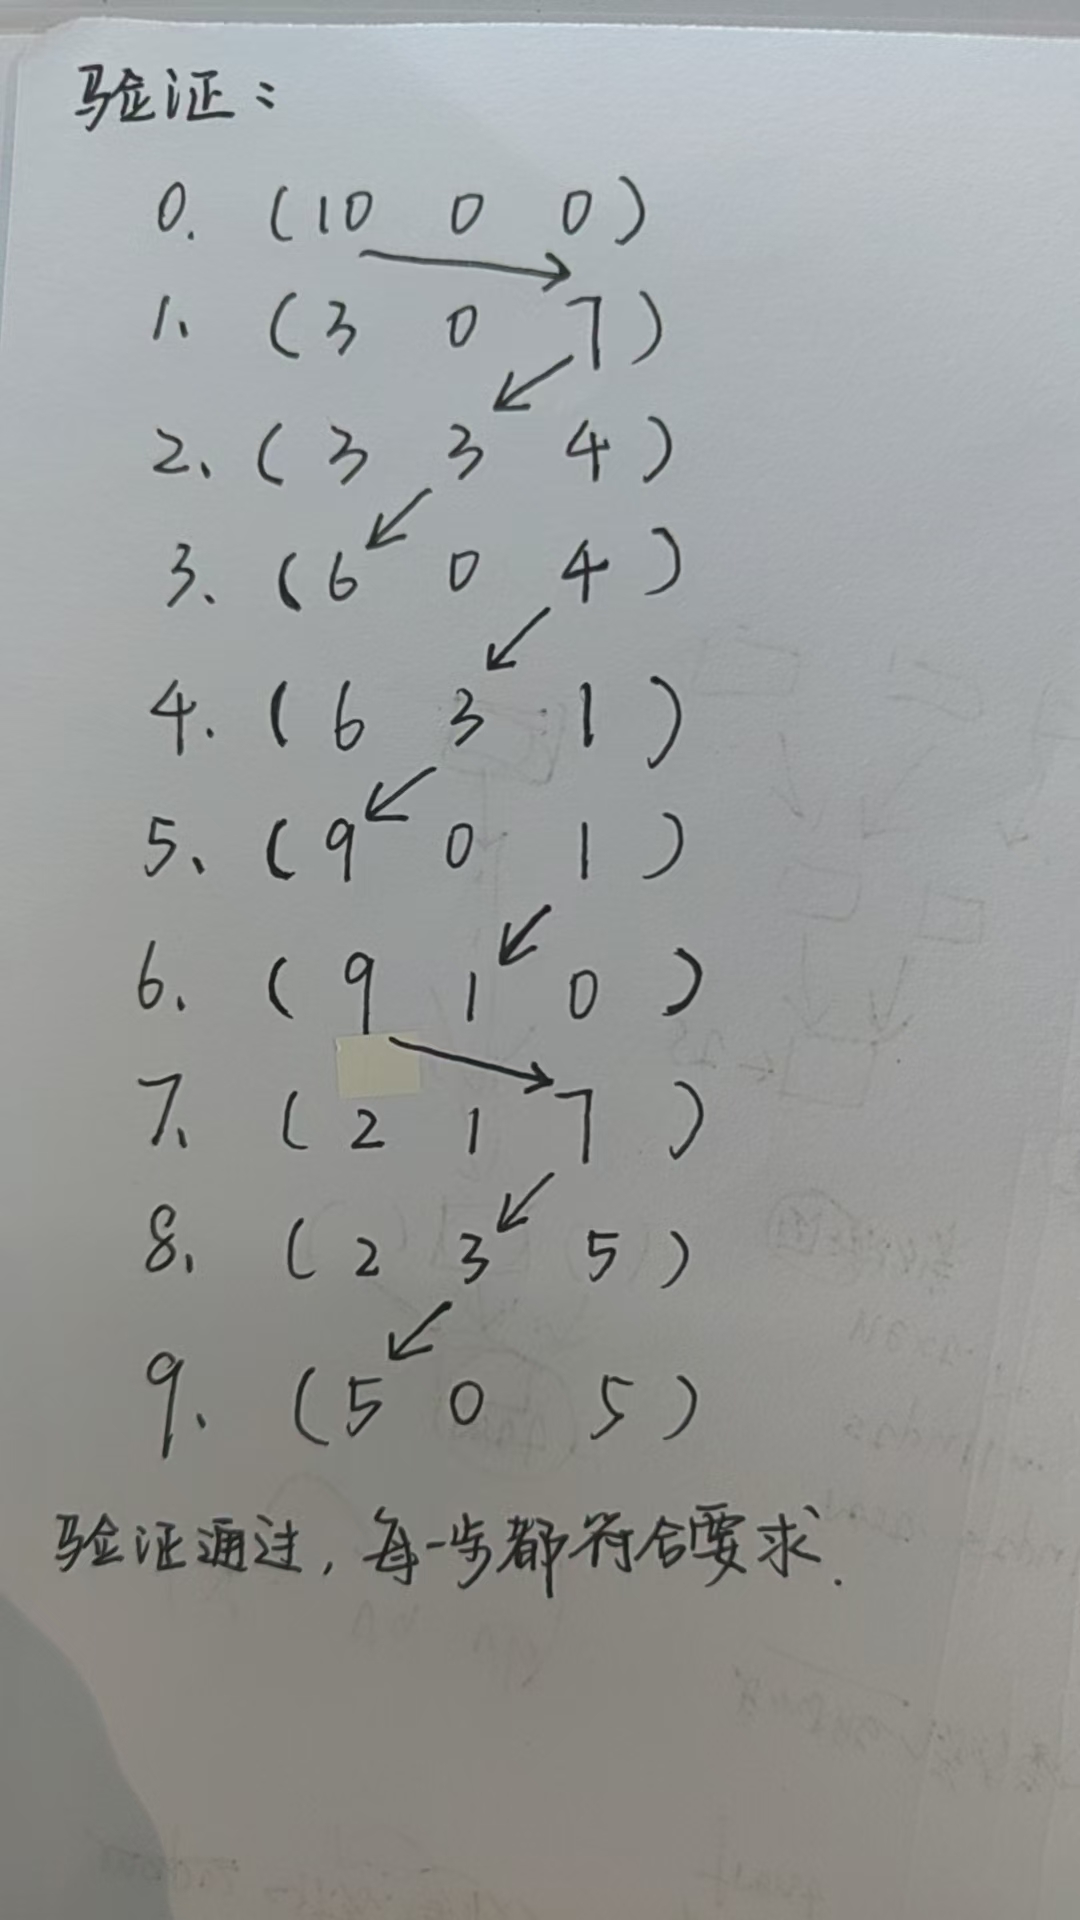 验证：
0. (10 0 0)
1、(3 0 7)
2、(3 3 4)
3、(6 0 4)
4. (6 3 1)
5、(9 0 1)
6、(9 1 0)
7、(2 1 7)
8、(2 3 5)
9、(5 0 5)
验证通过，每一步都符合要求.